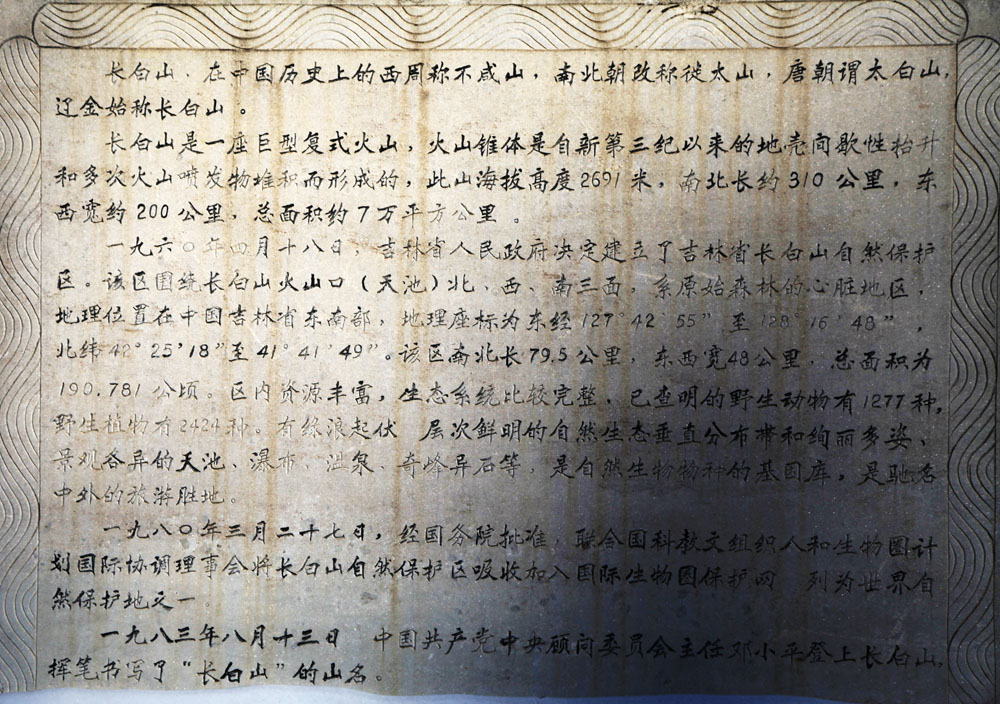 长白山、在中国历史上的西周称不咸山，南北朝改称徒太山，唐朝谓太白山，
辽金始称长白山。
长白山是一座巨型复式火山，火山锥体是自新第三纪以来的地壳间歇性抬升
和多次火山喷发物堆积而形成的，此山海拔高度2691米，南北长约310公里，东
西宽约200公里，总面积约7万平方公里。
一九六〇年四月十八日，吉林省人民政府决定建立了吉林省长白山自然保护
区。该区围绕长白山火山口（天池）北、西、南三面，系原始森林的心脏地区，
地理位置在中国吉林省东南部，地理座标为东经127°42′55″至128°16′48″，
北纬42°25′18″至41°41′49″。该区南北长79.5公里，东西宽48公里，总面积为
190.781公顷。区内资源丰富，生态系统比较完整，已查明的野生动物有1277种，
野生植物有2424种。有绿浪起伏 层次鲜明的自然生态垂直分布带和绚丽多姿、
景观各异的天池、瀑布、温泉、奇峰异石等，是自然生物物种的基因库，是驰名
中外的旅游胜地。
一九八〇年三月二十七日，经国务院批准，联合国科教文组织人和生物圈计
划国际协调理事会将长白山自然保护区吸收加入国际生物圈保护网 列为世界自
然保护地之一。
一九八三年八月十三日 中国共产党中央顾问委员会主任邓小平登上长白山，
挥笔书写了“长白山”的山名。